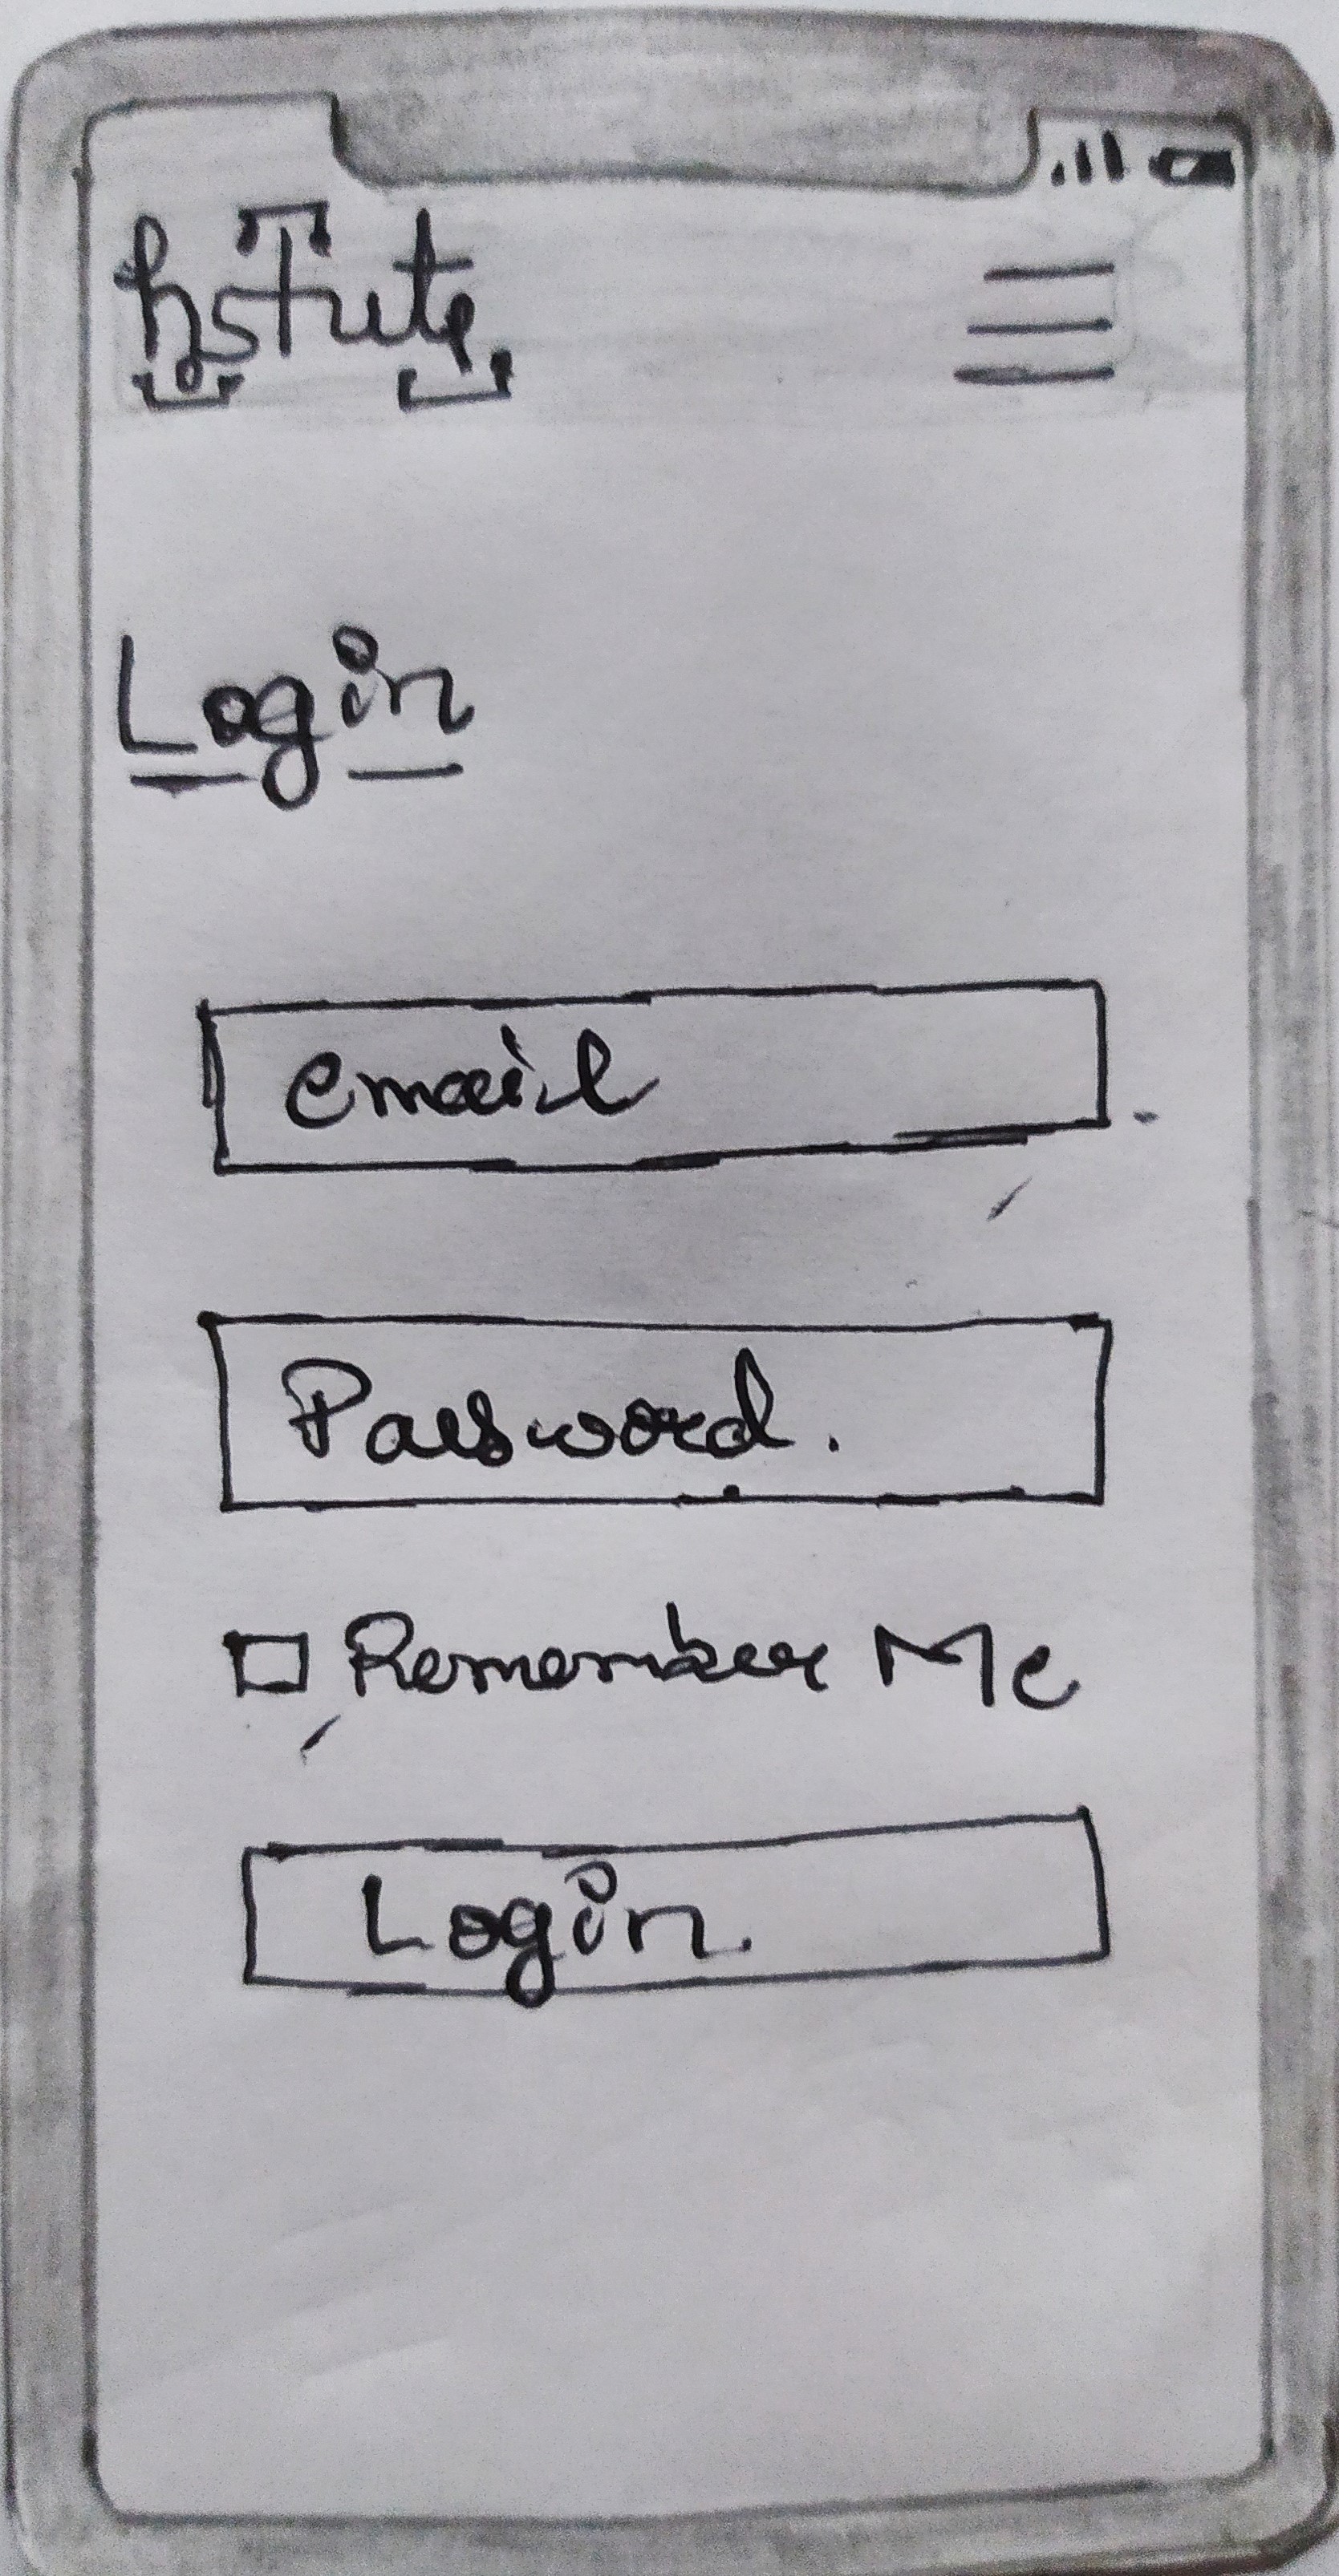 hstute
Login
email
Password.
Remember Me
Login.